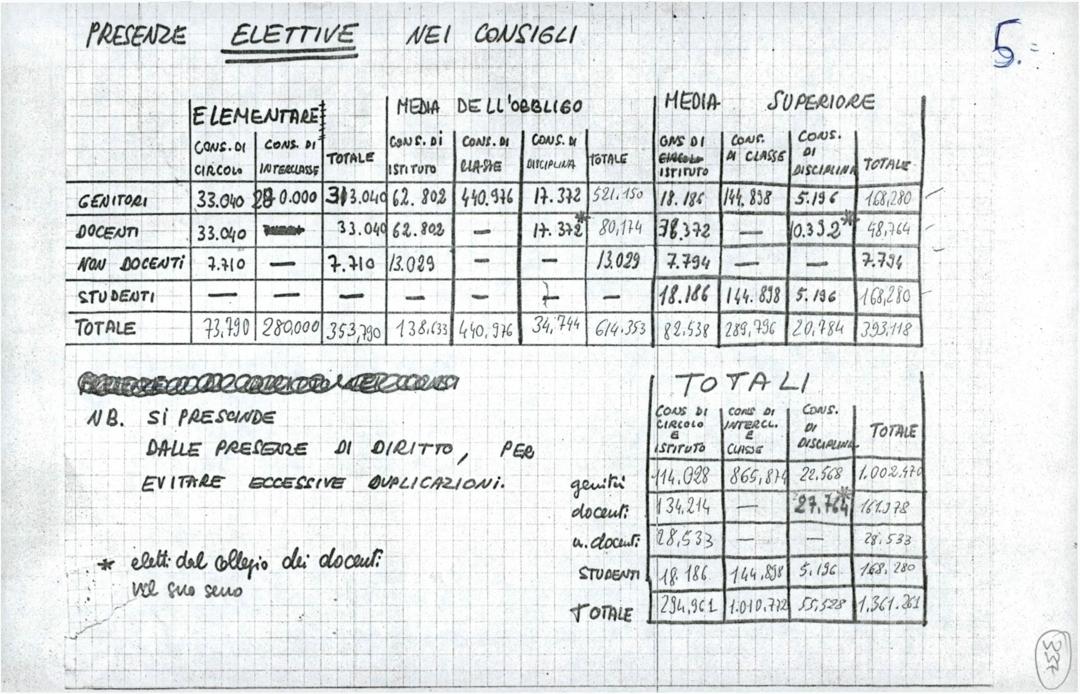 PRESENZE ELETTIVE NEI CONSIGLI
5.=
ELEMENTARE MEDIA DELL'OBBLIGO MEDIA SUPERIORE
CONS. DI CIRCOLO CONS. DI INTERCLASSE TOTALE CONS. DI ISTITUTO CONS. DI CLASSE CONS. DI DISCIPLINA TOTALE CONS DI CIRCOLO ISTITUTO CONS. DI CLASSE CONS. DI DISCIPLINA TOTALE
GENITORI 33.040 280.000 313.040 62.802 440.976 17.372 521.150 18.186 144.898 5.196 168,280
DOCENTI 33.040 33.040 62.802 — 17.372* 80,174 38.372 — 10.392* 48,764
NON DOCENTI 7.710 — 7.710 13.029 — — 13.029 7.794 — — 7.794
STUDENTI — — — — — — — 18.186 144.898 5.196 168,280
TOTALE 73,790 280,000 353,790 138,633 440,976 34,744 614.353 82.538 289,796 20,784 393,118
NB. SI PRESCINDE
DALLE PRESENZE DI DIRITTO, PER
EVITARE ECCESSIVE DUPLICAZIONI.
* eletti dal collegio dei docenti
nel suo seno
TOTALI
CONS DI CIRCOLO E ISTITUTO CONS DI INTERCL. E CLASSE CONS. DI DISCIPLINA TOTALE
genitori 114.028 865,874 22.568 1.002.470
docenti 134.214 — 27.764* 161.978
n. docenti 28,533 — — 28.533
STUDENTI 18.186 144,898 5.196 168.280
TOTALE 294,961 1.010.772 55,528 1.361.261
337